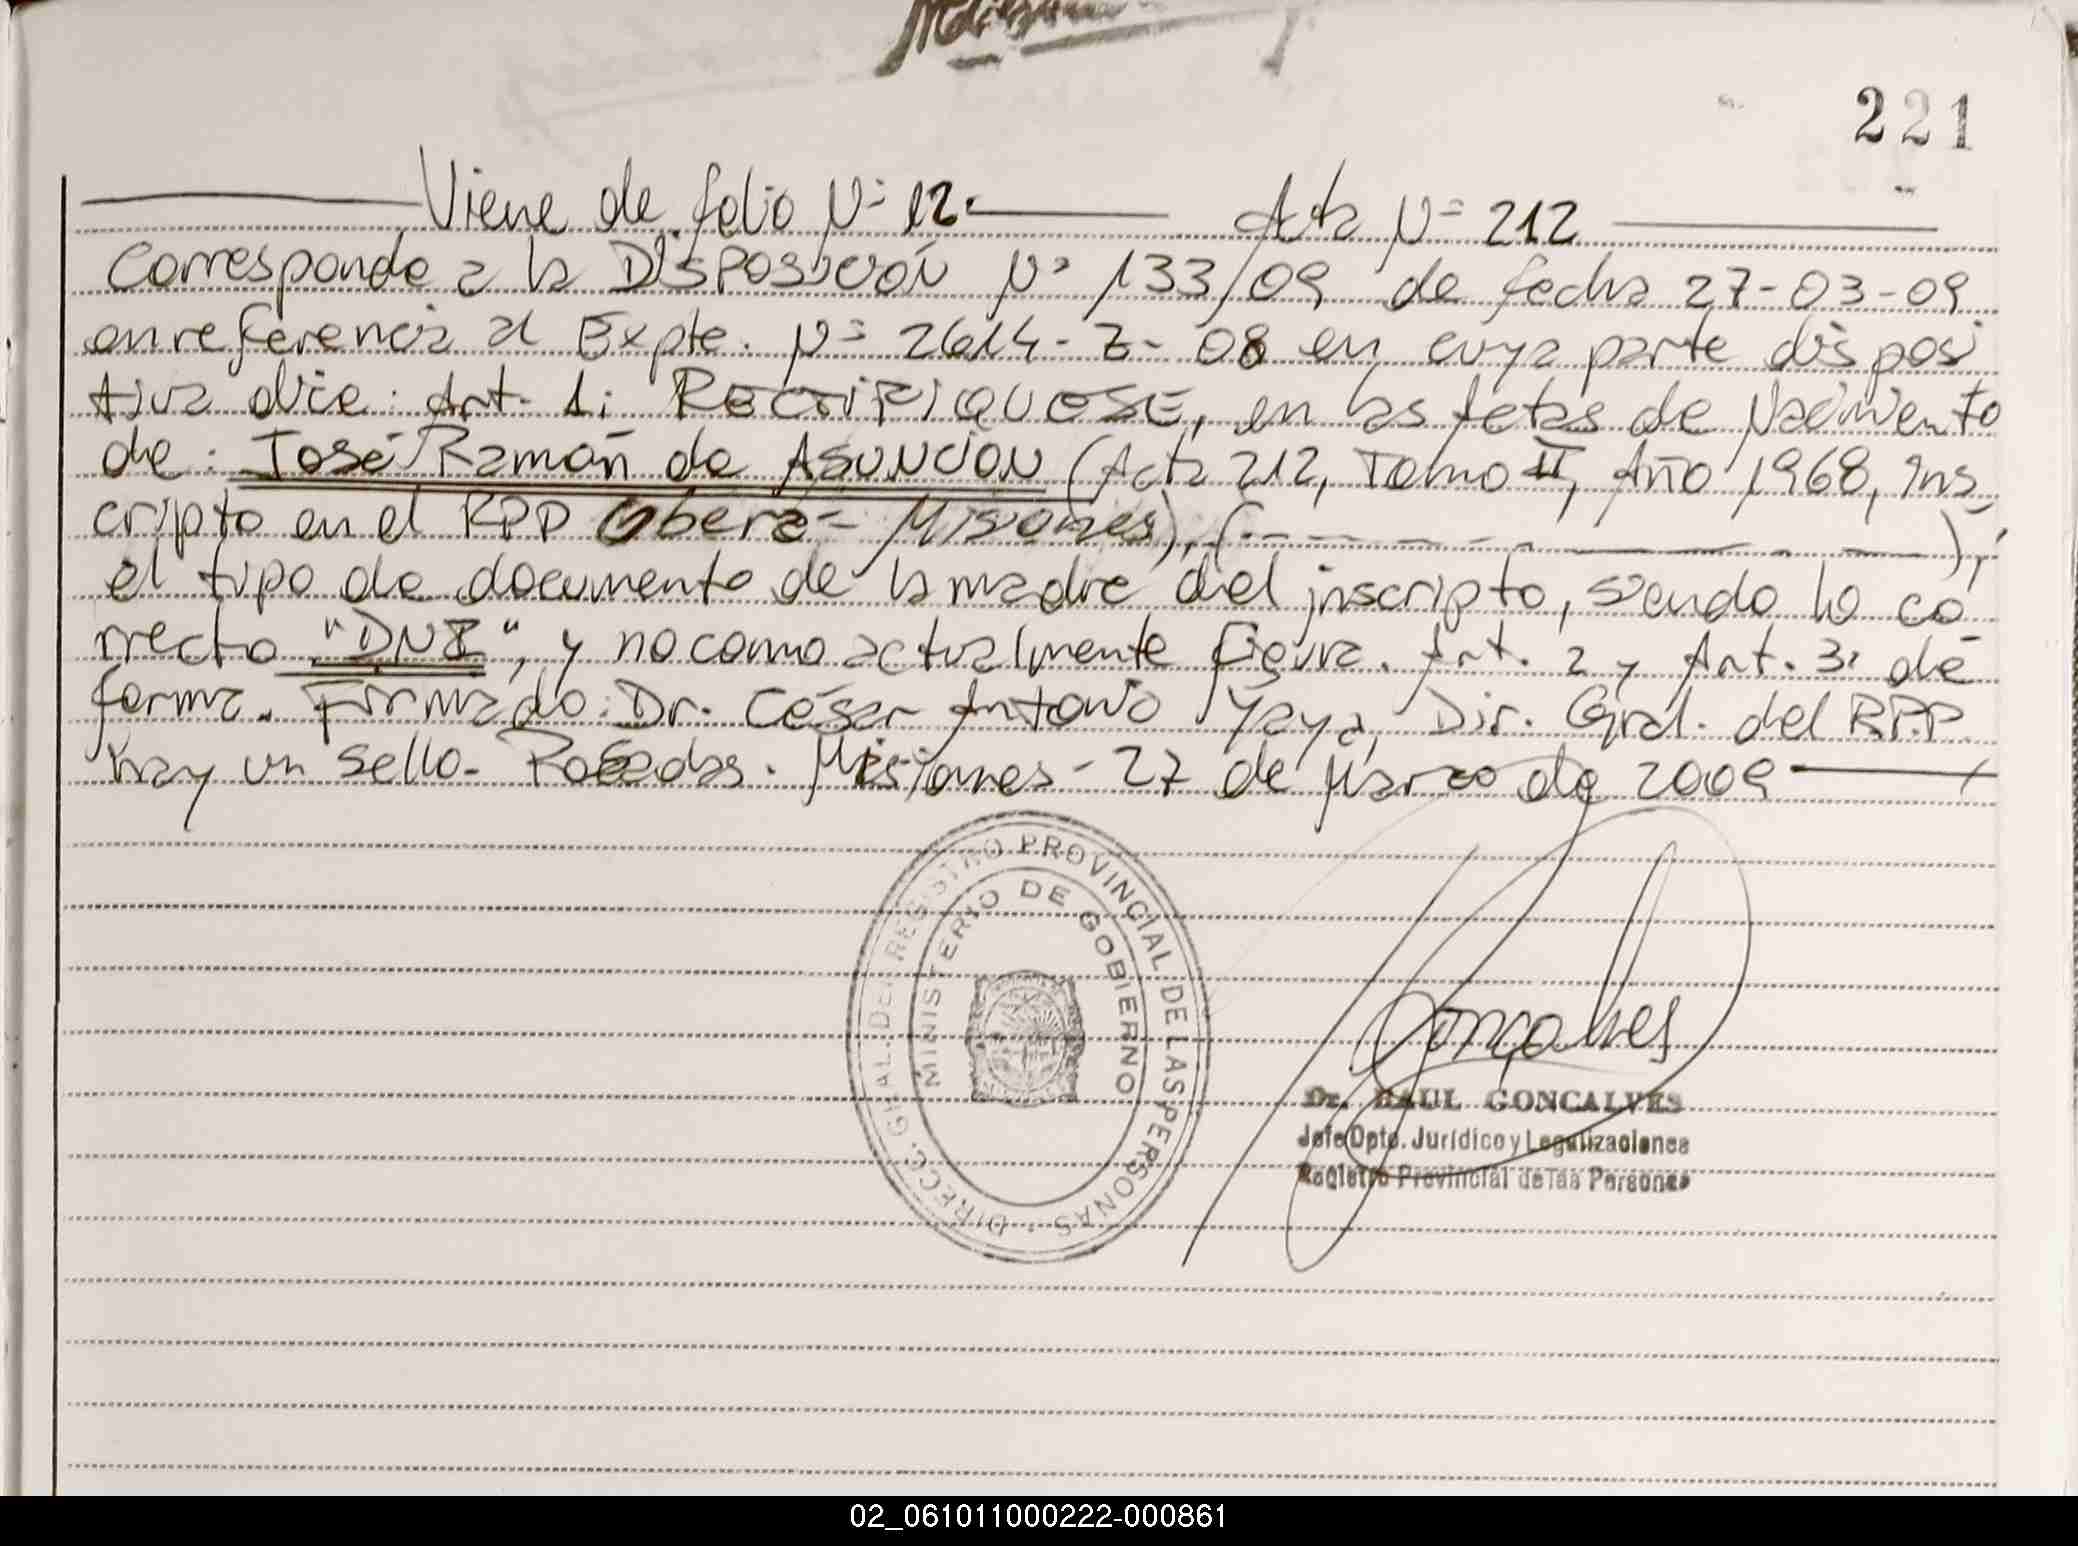 221
Viene de folio Nº 12.- Acta Nº 212
Corresponde a la DISPOSICIÓN Nº 133/09 de fecha 27-03-09
en referencia al Expte. Nº 2614-Z-08 en cuya parte disposi
tiva dice: Art. 1: RECTIFIQUESE, en las Actas de Nacimiento
de: José Ramón de ASUNCIÓN (Acta 212, Tomo II, Año 1968, ins
cripto en el RPP Oberá - Misiones), (-- -- -- -- --),
el tipo de documento de la madre del inscripto, siendo lo co
rrecto "DNI", y no como actualmente figura. Art. 2 y Art. 3: de
forma. Firmado: Dr. César Antonio Yaya, Dir. Gral. del R.P.P.
hay un sello - Posadas. Misiones - 27 de Marzo de 2009
DIRECC. GRAL. DEL REGISTRO PROVINCIAL DE LAS PERSONAS
MINISTERIO DE GOBIERNO
Gonçalves
Dr. RAUL GONCALVES
Jefe Dpto. Jurídico y Legalizaciones
Registro Provincial de las Personas
02_061011000222-000861